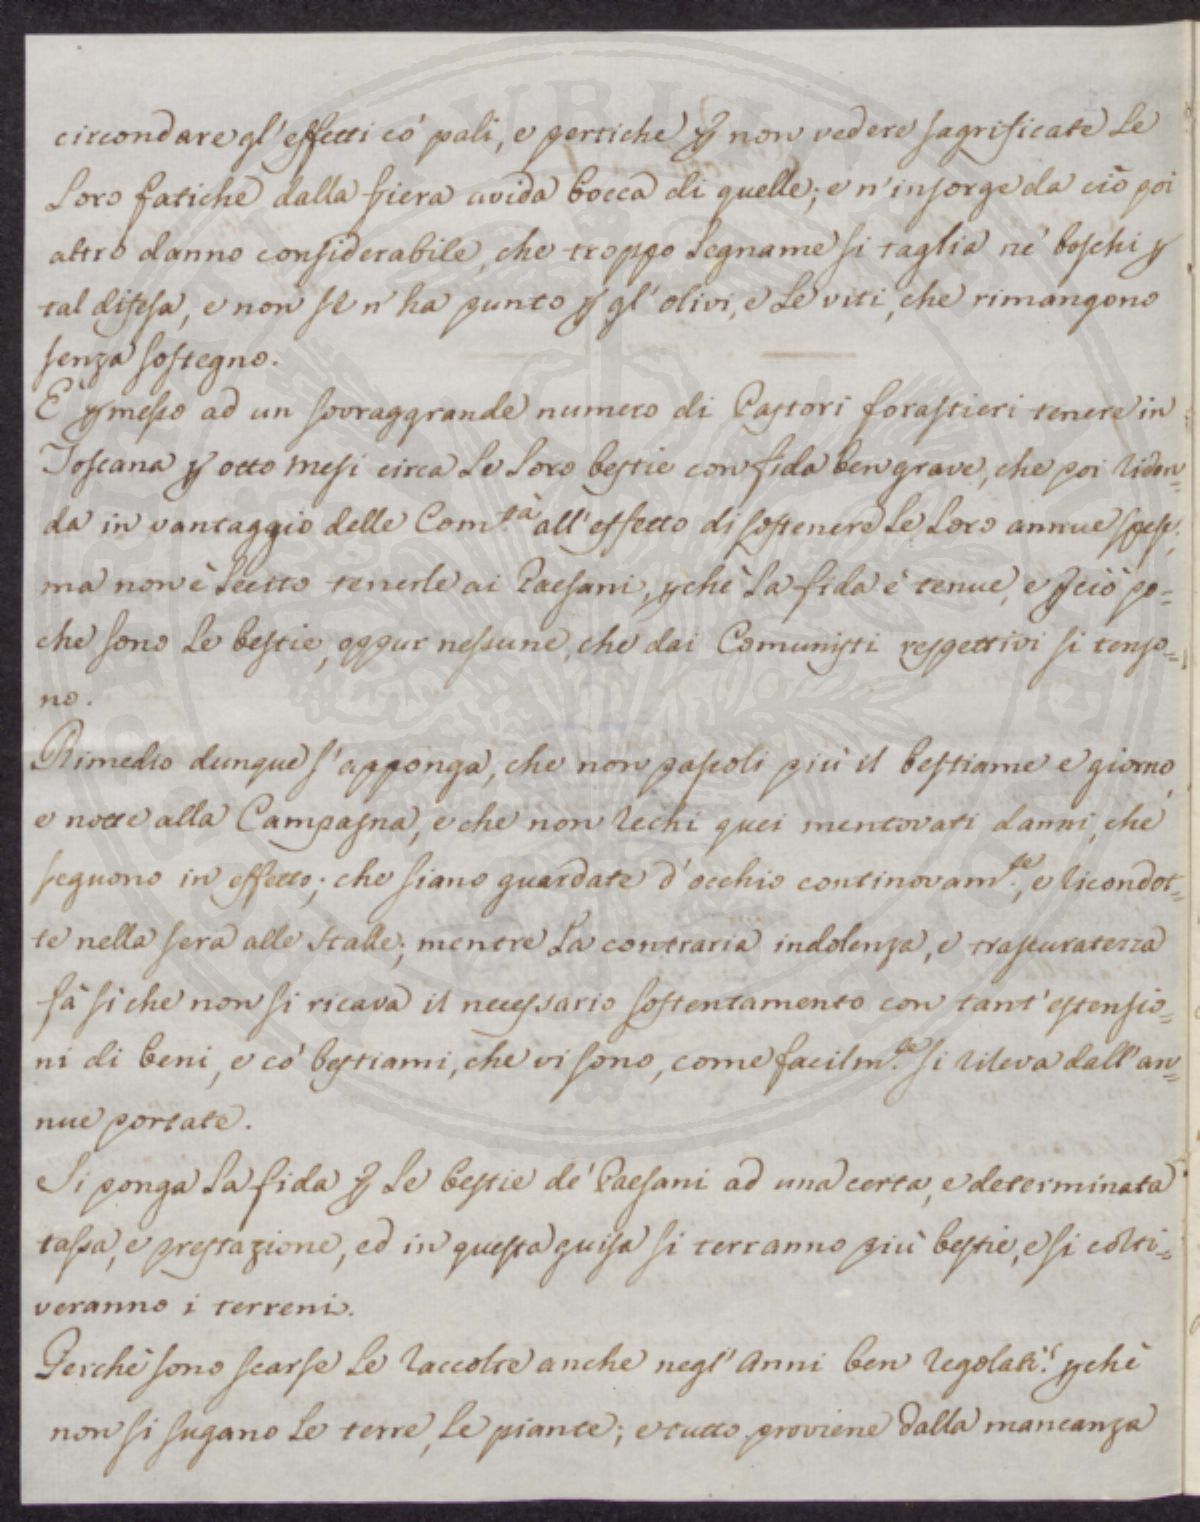 circondare gl'effetti có pali, e pertiche p non vedere sagrificate le
loro fatiche dalla fiera avida bocca di quelle; e n'insorge da ciò poi
altro danno considerabile, che troppo legname si taglia né boschi p
tal difesa, e non se n'ha punto p gl'olivi, e le viti, che rimangono
senza sostegno.
È pmesso ad un sovraggrande numero di Pastori forastieri tenere in
Toscana p otto mesi circa le loro bestie con fida ben grave, che poi ridon=
da in vantaggio delle Com.tà all'effetto di sostenere le loro annue spese;
ma non è lecito tenerle ai Paesani, pchè la fida è tenue, e pciò po=
che sono le bestie, oppur nessune, che dai Comunisti respettivi si tengo=
no.
Rimedio dunque s'apponga, che non pascoli più il bestiame e giorno,
e notte alla Campagna, e che non rechi quei mentovati danni, che
seguono in effetto; che siano guardate d'occhio continovam.te, e ricondot=
te nella sera alle stalle; mentre la contraria indolenza, e trascuratezza
fà sì che non si ricava il necessario sostentamento con tant'estensio=
ni di beni, e có bestiami, che vi sono, come facilm.te si rileva dall'an=
nue portate.
Si ponga la fida p le bestie dé Paesani ad una certa, e determinata
tassa, e prestazione, ed in questa guisa si terranno più bestie, e si colti=
veranno i terreni.
Perchè sono scarse le raccolte anche negl'Anni ben regolati? pchè
non si sugano le terre, le piante; e tutto proviene dalla mancanza